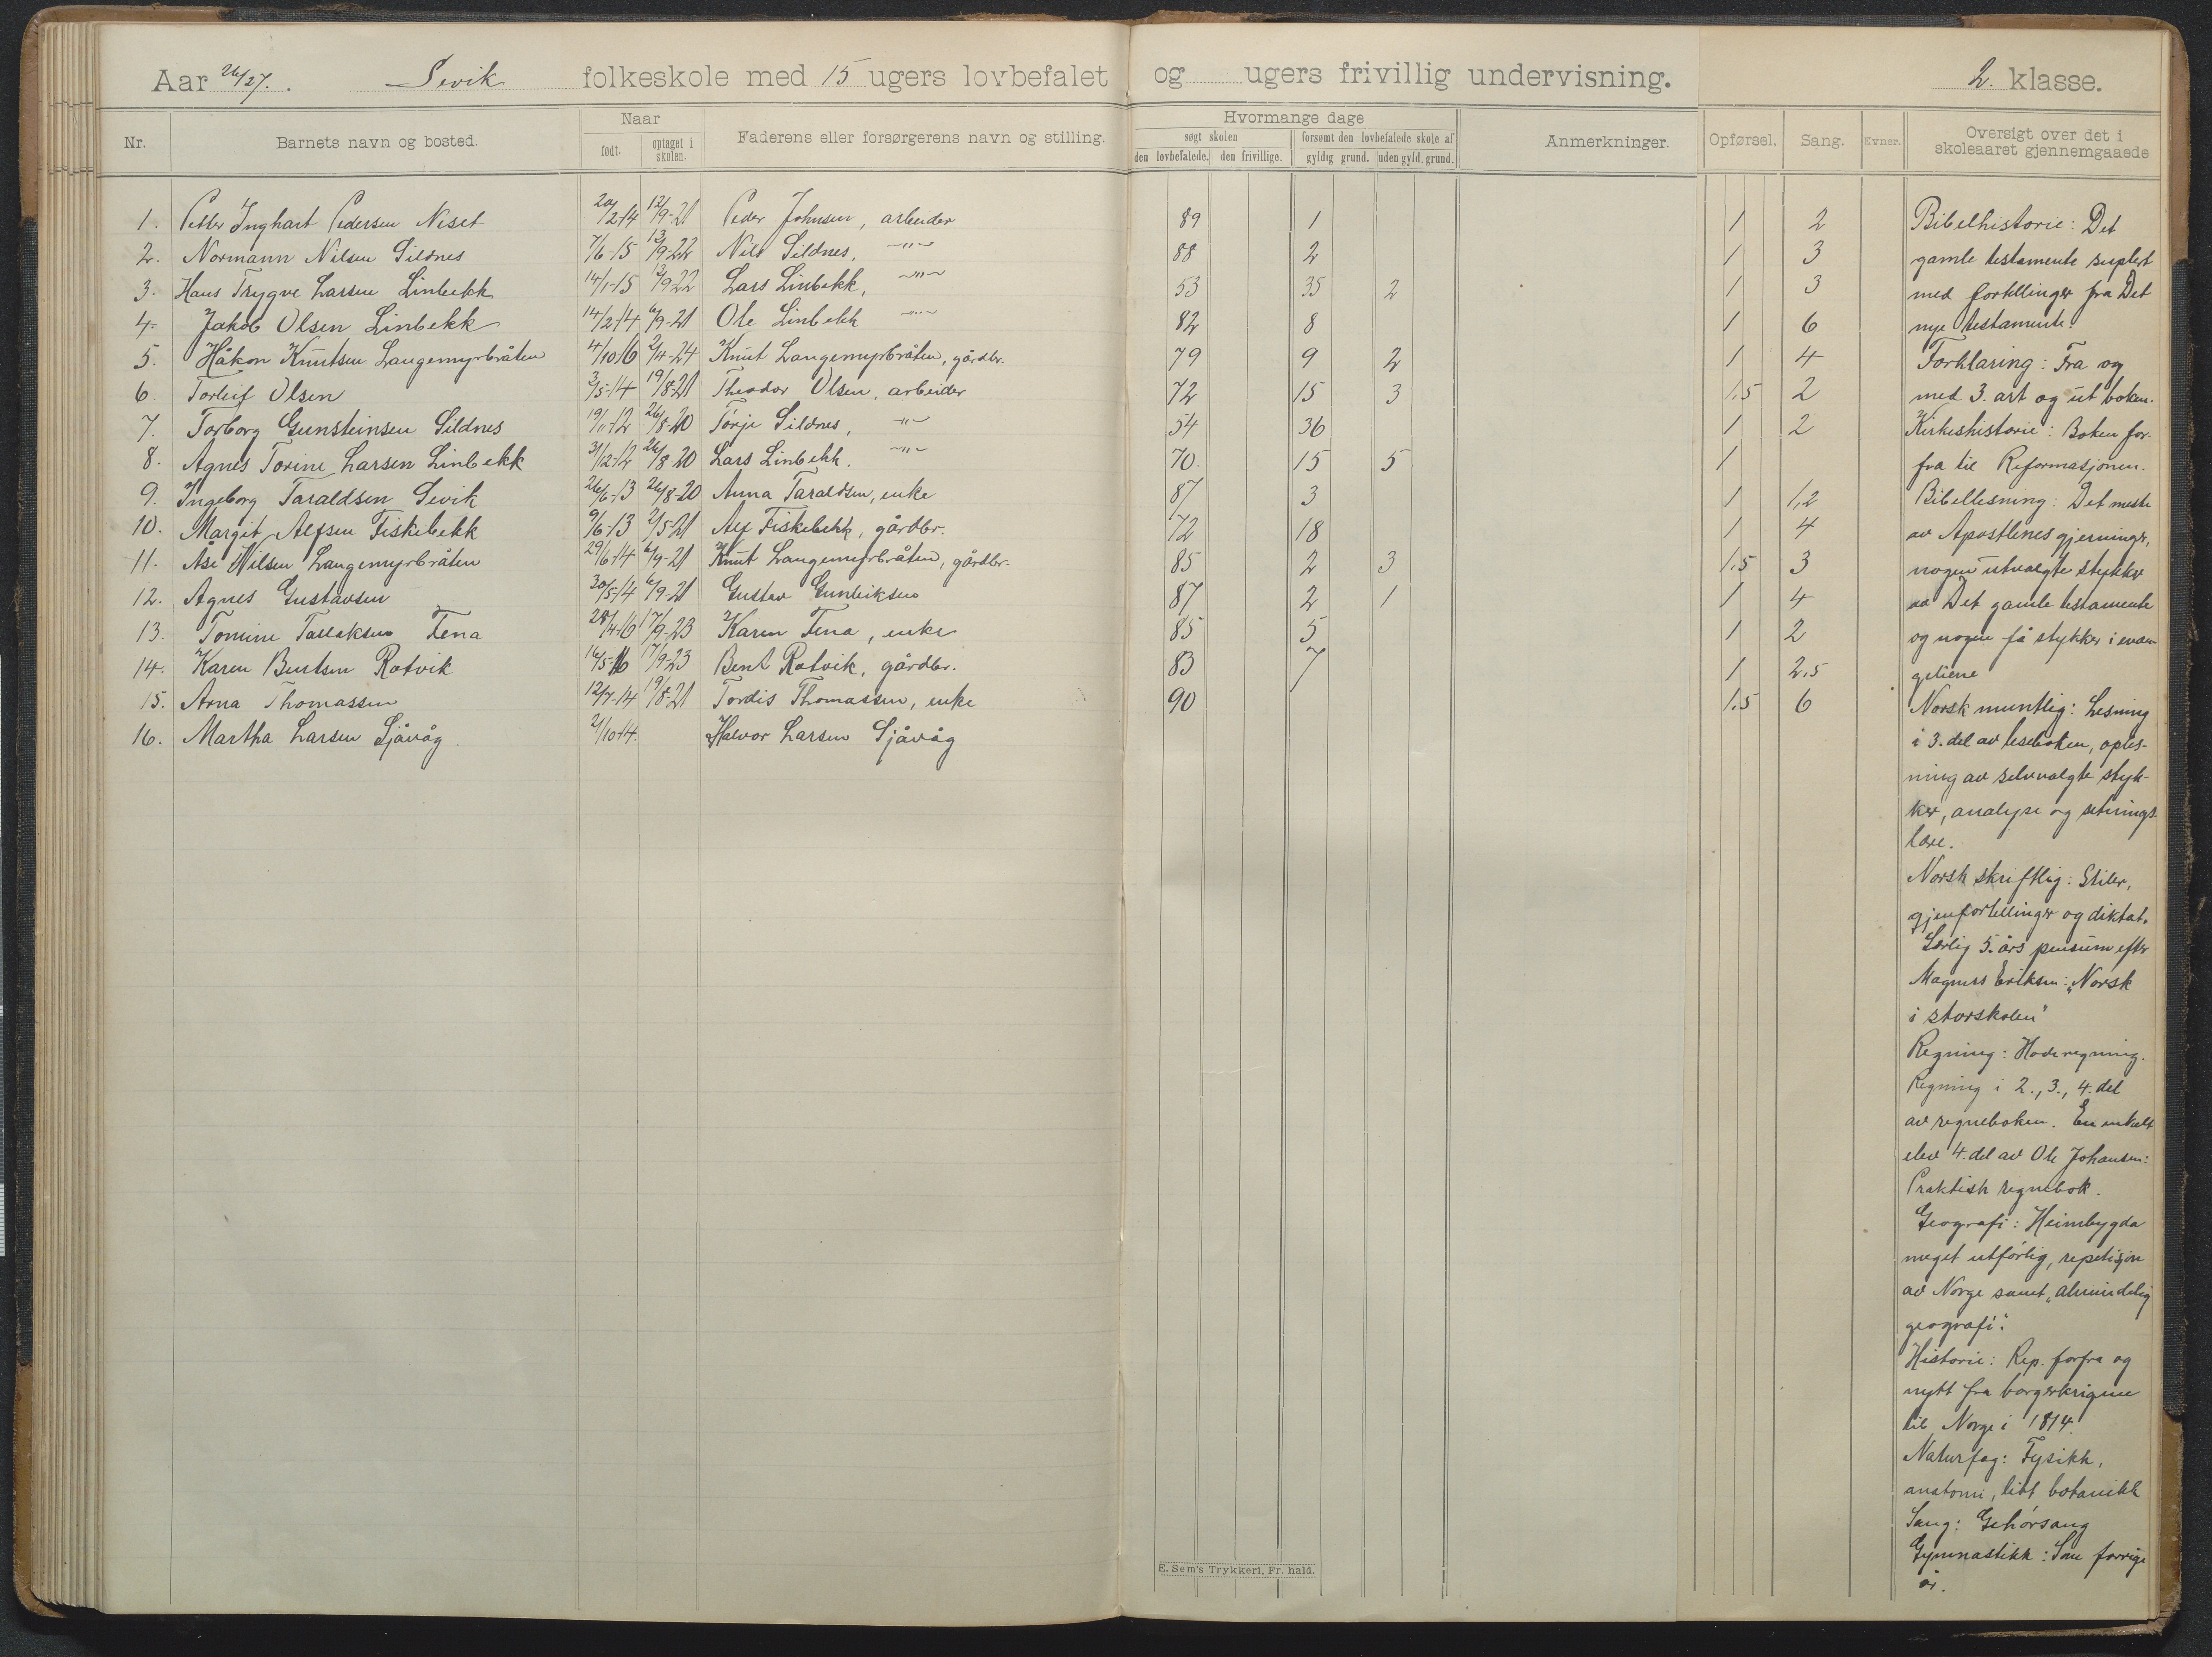 Aar 26/27. Sevik folkeskole med 15 ugers lovbefalet og ugers frivillig undervisning. 2. klasse.
Nr. Barnets navn og bosted. Naar født. optaget i skolen. Faderens eller forsørgerens navn og stilling. Hvormange dage søgt skolen den lovbefalede. den frivillige. forsømt den lovbefalede skole af gyldig grund. uden gyld. grund. Anmerkninger. Opførsel. Sang. Evner. Oversigt over det i skoleaaret gjennemgaaede
1. Petter Inghart Pedersen Neset 20/2-14 12/9-21 Peder Johnsen, arbeider 89 1 1 2
2. Normann Nilsen Sildnes 7/6-15 13/9-22 Nils Sildnes, -"- 88 2 1 3
3. Hans Trygve Larsen Linbekk 14/1-15 13/9-22 Lars Linbekk, -"- 53 35 2 1 3
4. Jakob Olsen Linbekk 14/2-14 6/9-21 Ole Linbekk -"- 82 8 1 6
5. Håkon Knutsen Langemyrbråten 4/10-16 2/4-24 Knut Langemyrbråten, gårdbr. 79 9 2 1 4
6. Torleif Olsen 3/5-14 19/8-21 Theodor Olsen, arbeider 72 15 3 1.5 2
7. Torborg Gunsteinsen Sildnes 19/11-12 26/8-20 Torje Sildnes, -"- 54 36 1 2
8. Agnes Torine Larsen Linbekk 31/12-12 26/8-20 Lars Linbekk. -"- 70. 15 5 1
9. Ingeborg Taraldsen Sevik 26/6-13 26/8-20 Anna Taraldsen, enke 87 3 1 1,2
10. Margit Alfsen Fiskebekk 9/6-13 2/5-21 Alf Fiskebekk, gårdbr. 72 18 1 4
11. Åse Nilsen Langemyrbråten 29/6-14 6/9-21 Knut Langemyrbråten, gårdbr. 85 2 3 1.5 3
12. Agnes Gustavsen 30/5-14 6/9-21 Gustav Gunleiksen 87 2 1 1 4
13. Tomine Tallaksen Fena 28/4-16 17/9-23 Karen Fena, enke 85 5 1 2
14. Karen Bentsen Rotvik 16/5-16 17/9-23 Bent Rotvik, gårdbr. 83 7 1 2,5
15. Arna Thomassen 12/7-14 19/8-21 Tordis Thomassen, enke 90 1.5 6
16. Martha Larsen Sjåvåg. 2/10-14. Halvor Larsen Sjåvåg
Bibelhistorie: Det
gamle testamente suplert
med fortellinger fra Det
nye testamente.
Forklaring: Fra og
med 3. art og ut boken.
Kirkeshistorie: Boken for-
fra til Reformasjonen.
Bibellesning: Det meste
av Apostlenes gjerninger,
nogen utvalgte stykker
av Det gamle testamente
og nogen få stykker i evan-
geliene
Norsk muntlig: Lesning
i 3. del av leseboken, oples-
ning av selvvalgte styk-
ker, analyse og setnings-
lære.
Norsk skriftlig: Stiler,
gjenfortellinger og diktat.
Særlig 5. års pensum efter
Magnus Eriksen: "Norsk
i storskolen"
Regning: Hoderegning.
Regning i 2., 3., 4. del
av regneboken. En enkelt
elev 4. del av Ole Johansen:
Praktisk regnebok.
Geografi: Heimbygda
meget utførlig, repetisjon
av Norge samt "almindelig
geografi".
Historie: Rep. forfra og
nytt fra borgerkrigene
til Norge i 1814.
Naturfag: Fysikk,
anatomi, litt botanikk
Sang: Gehørsang
Gymnastikk: Som forrige
år.
E. Sem's Trykkeri, Fr. hald.